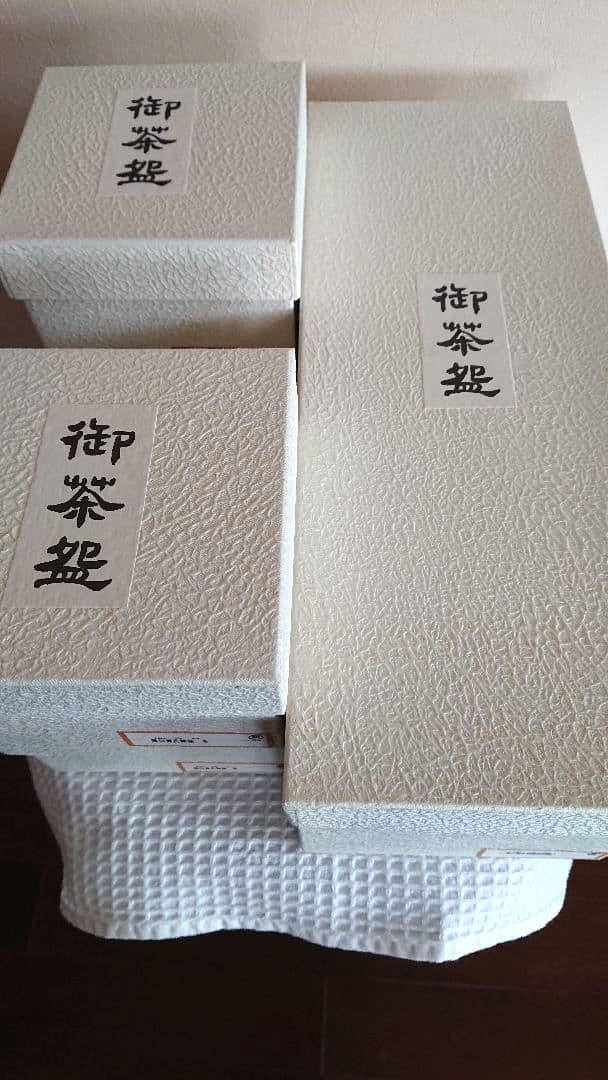 御茶盌
御茶盌
御茶盌